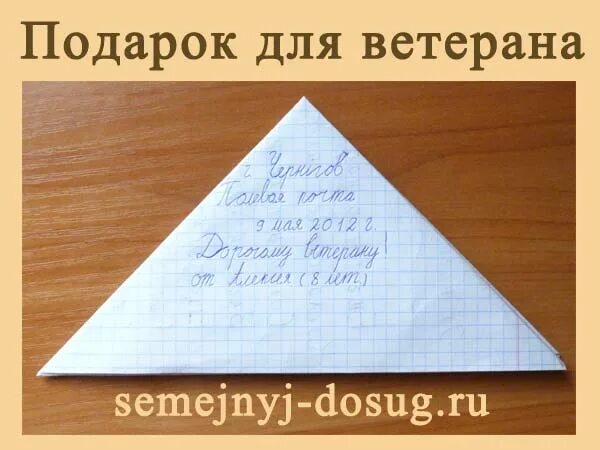 Подарок для ветерана
г. Чернігов
Полевая почта
9 мая 2012 г.
Дорогому ветерану!
от Алексея (8 лет)
semejnyj-dosug.ru